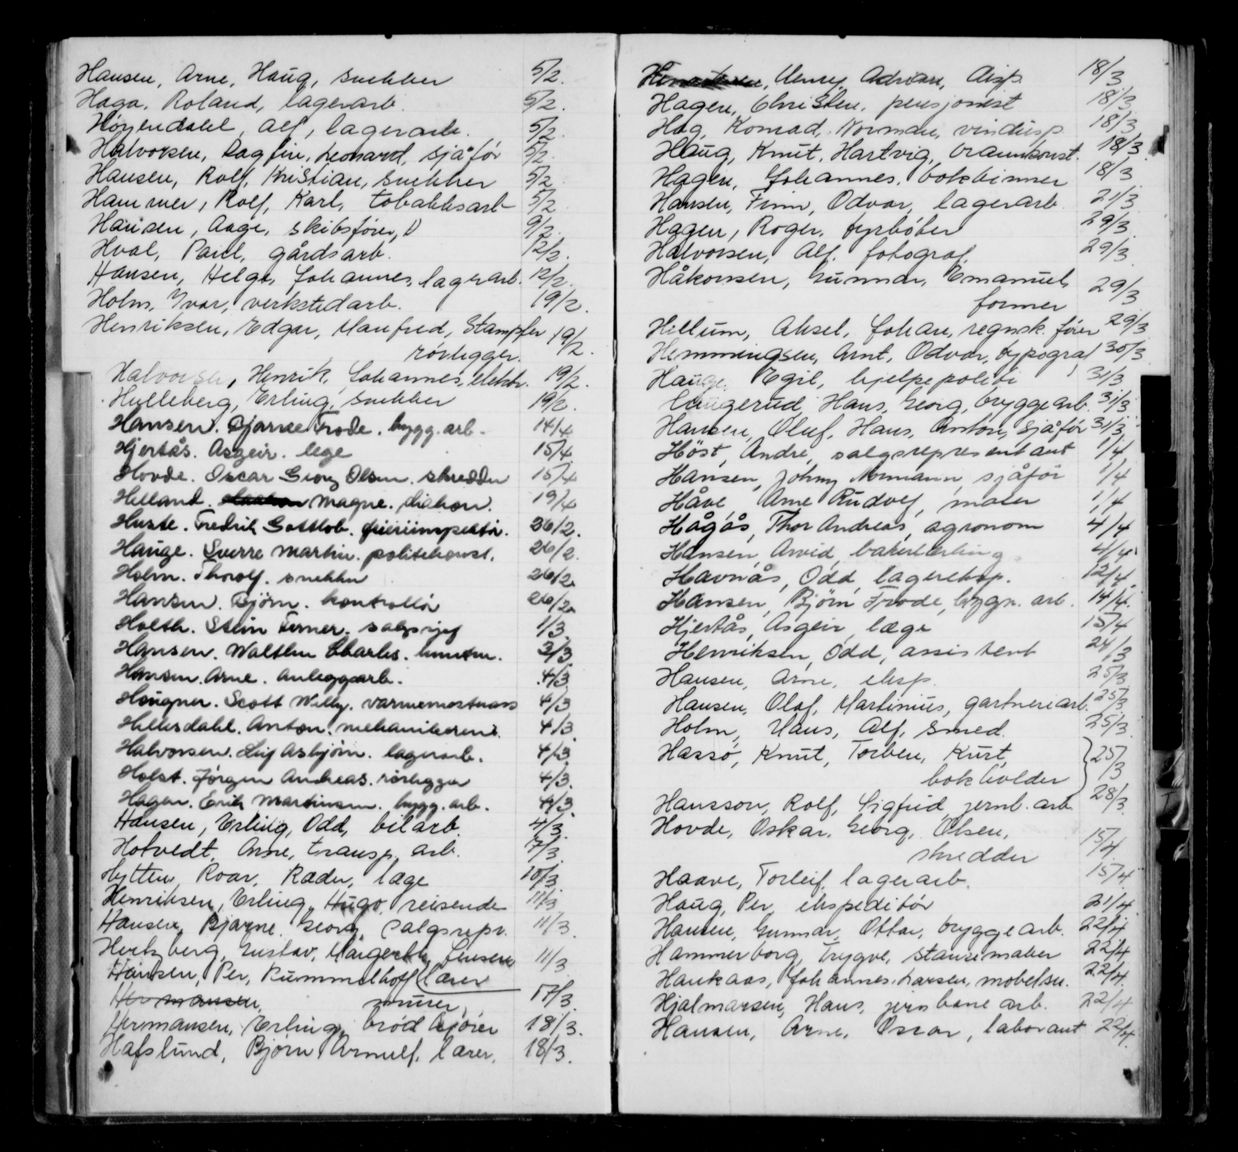 Hansen, Arne, Haug, snekker 5/2.
Haga, Roland, lagerarb. 5/2.
Höyendahl, Alf, lagerarb. 5/2.
Halvorsen, Dagfin, Leonard, sjåför 5/2.
Hansen, Rolf, Kristian, snekker 5/2.
Hammer, Rolf, Karl, tobakksarb 5/2
Hansen, Aage, skibsförer, 9/2.
Hval, Paul, gårdsarb. 12/2.
Hansen, Helge, Johannes, lagerarb. 12/2.
Holm, Ivar, verkstedarb. 19/2.
Henriksen, Edgar, Manfred, Stampfer
rörlegger. 19/2.
Halvorsen, Henrik, Johannes, elektr. 19/2.
Hylleberg, Erling, snekker 19/2.
Hansen. Bjarne Frode. bygg.arb. 14/4
Hjertås. Asgeir. lege 15/4
Hovde. Oscar Georg Olsen. skredder 15/4
Helland. Magne. diakon. 19/4
Huste. Fredrik Gottlob. 26/2.
Hauge. Sverre Martin. politikonst. 26/2.
Holm. Thorolf. snekker 26/2.
Hansen. Björn. kontrollör 26/2.
Holth. Stein Verner. salgssjef 1/3.
Hansen. Walther Charles. 3/3.
Hansen. Arne. anleggsarb. 4/3.
Haugner. Scott Willy. varmemester 4/3
Hellesdahl. Anton. mekaniker 4/3.
Halvorsen. Leif Asbjörn. lagerarb. 4/3.
Holst. Jörgen Andreas. rörlegger 4/3.
Hagen. Erik Martinsen. bygg.arb. 4/3.
Hansen, Erling, Odd, bilarb. 4/3.
Hotvedt, Arne, transp. arb. 7/3.
Hytten, Roar, Ræder, læge 10/3.
Henriksen, Erling, Hugo, reisende 11/3.
Hansen, Bjarne, Georg, salgsrepr. 11/3.
Hertzberg, Gustav, Margerth, Jensen 11/3.
Hansen, Per, Rummelhoff, lærer
Hermansen, 17/3.
Hermansen, Erling, bröd kjörer 18/3.
Hafslund, Björn Arnulf, lærer. 18/3.
Henry, Adrian, disp. 18/3
Hagen, Christen, pensjonist 18/3
Hag, Konrad, Norman, vindusp 18/3
Haug, Knut, Hartvig, brannkonst. 18/3.
Hagen, Johannes, bokbinner 18/3
Hansen, Finn, Odvar, lagerarb. 21/3
Hagen, Roger, fyrböter 29/3.
Halvorsen, Alf, fotograf. 29/3.
Håkonsen, Gunnar, Emanuel,
former 29/3
Hillum, Aksel, Johan, regnsk. förer 29/3
Hemmingsen, Arnt, Odvar, typograf 30/3
Hauge, Egil, hjelpepoliti 31/3
Haugerud, Hans, Georg, bryggearb. 31/3
Hansen, Oluf, Hans, Anton, sjåför 31/3
Höst, André, salgsrepresentant 1/4
Hansen, Johny Normann, sjåför 1/4
Håve, Arne Rudolf, maler 1/4
Hågås, Thor Andreas, agronom 4/4
Hansen, Arvid, bakerlærling 4/4
Havnås, Odd, lagereksp. 12/4.
Hansen, Björn Frode, bygn. arb. 14/4.
Hjertås, Asgeir, læge 15/4
Henriksen, Odd, assistent 24/3
Hansen, Arne, eksp. 25/3
Hansen, Olaf, Martinius, gartneriarb. 25/3
Holm, Hans, Alf, smed. 25/3.
Hassö, Knut, Torben, Kurt,
bokholder 25/3
Hansson, Rolf, Sigfrid, jernb. arb. 28/3.
Hovde, Oskar, Georg, Olsen,
skredder 15/4
Haave, Torleif, lagerarb. 15/4.
Haug, Per, ekspeditör 21/4.
Hansen, Gunnar, Ottar, bryggearb. 22/4.
Hammerborg, Trygve, stansemaker 22/4.
Haukaas, Johannes, Larsen, möbelsn. 22/4.
Hjalmarsen, Hans, jernbane arb. 22/4
Hansen, Arne, Oscar, laborant 22/4.